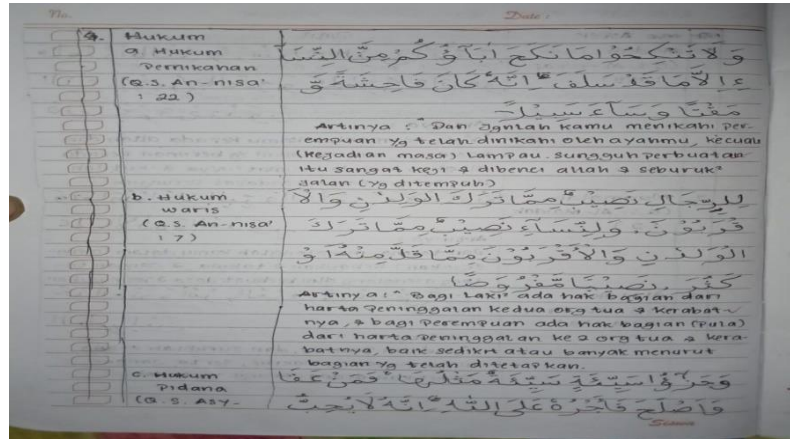 No.
Date :
4. Hukum
a. Hukum
Pernikahan
(Q.S. An-nisa'
: 22)
وَلَا تَنْكِحُوْا مَا نَكَحَ اٰبَآؤُكُمْ مِنَ النِّسَآ
ءِ اِلَّا مَا قَدْ سَلَفَ ۗ اِنَّهٗ كَانَ فَاحِشَةً وَّ
مَقْتًا وَسَآءَ سَبِيْلًا
Artinya : "Dan Jgnlah kamu menikahi per-
empuan yg telah dinikahi oleh ayahmu, kecuali
(kejadian masa) lampau. sungguh perbuatan
itu sangat keji & dibenci allah & seburuk²
jalan (yg ditempuh)
b. Hukum
waris
(Q.S. An-nisa'
: 7)
لِلرِّجَالِ نَصِيْبٌ مِمَّا تَرَكَ الْوٰلِدٰنِ وَالْاَ
قْرَبُوْنَ، وَلِلنِّسَاءِ نَصِيْبٌ مِمَّا تَرَكَ
الْوٰلِدٰنِ وَالْاَقْرَبُوْنَ مِمَّا قَلَّ مِنْهُ اَوْ
كَثُرَ، نَصِيْبًا مَفْرُوْضًا
Artinya : "Bagi Laki² ada hak bagian dari
harta peninggalan kedua org tua & kerabat-
nya, & bagi perempuan ada hak bagian (pula)
dari harta peninggalan ke 2 org tua & kera-
batnya, baik sedikit atau banyak menurut
bagian yg telah ditetapkan.
c. Hukum
Pidana
(Q.S. Asy-
وَجَزٰٓؤُا سَيِّئَةٍ سَيِّئَةٌ مِثْلُهَا ۚ فَمَنْ عَفَا
وَاَصْلَحَ فَاَجْرُهٗ عَلَى اللّٰهِ ۗ اِنَّهٗ لَا يُحِبُّ